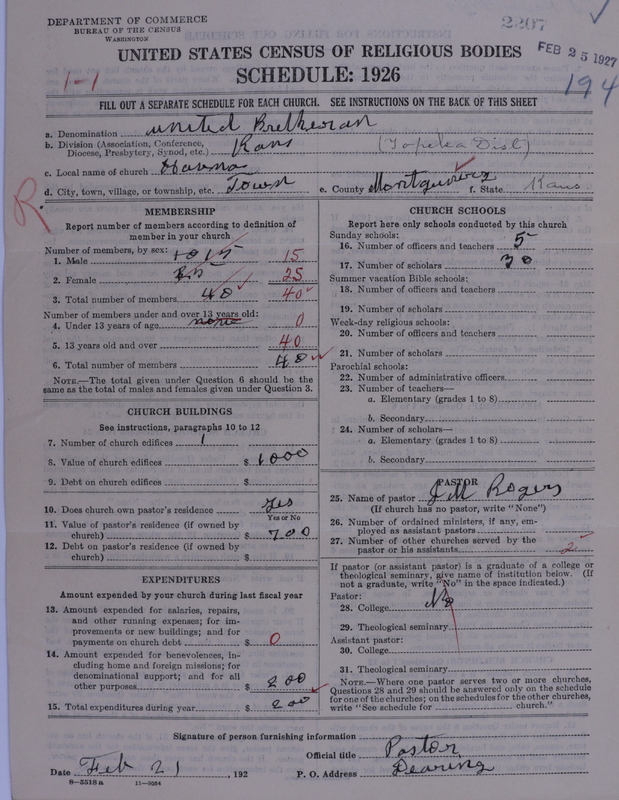 DEPARTMENT OF COMMERCE
BUREAU OF THE CENSUS
WASHINGTON
2207
UNITED STATES CENSUS OF RELIGIOUS BODIES
FEB 25 1927
SCHEDULE: 1926
1-1
194
FILL OUT A SEPARATE SCHEDULE FOR EACH CHURCH. SEE INSTRUCTIONS ON THE BACK OF THIS SHEET
a. Denomination United Bretheran
b. Division (Association, Conference, Diocese, Presbytery, Synod, etc.) Kans (Topeka Dist)
c. Local name of church Havana
d. City, town, village, or township, etc. Town e. County Montgomery f. State Kans.
R
MEMBERSHIP
Report number of members according to definition of
member in your church
Number of members, by sex:
1. Male 15 15
2. Female 25
3. Total number of members 40 40
Number of members under and over 13 years old:
4. Under 13 years of age none 0
5. 13 years old and over 40
6. Total number of members 40
NOTE.—The total given under Question 6 should be the
same as the total of males and females given under Question 3.
CHURCH BUILDINGS
See instructions, paragraphs 10 to 12
7. Number of church edifices 1
8. Value of church edifices $ 1000
9. Debt on church edifices $
10. Does church own pastor's residence Yes
Yes or No
11. Value of pastor's residence (if owned by
church) $ 700
12. Debt on pastor's residence (if owned by
church) $
EXPENDITURES
Amount expended by your church during last fiscal year
13. Amount expended for salaries, repairs,
and other running expenses; for im-
provements or new buildings; and for
payments on church debt $ 0
14. Amount expended for benevolences, in-
cluding home and foreign missions; for
denominational support; and for all
other purposes $ 200
15. Total expenditures during year $ 200
CHURCH SCHOOLS
Report here only schools conducted by this church
Sunday schools:
16. Number of officers and teachers 5
17. Number of scholars 30
Summer vacation Bible schools:
18. Number of officers and teachers
19. Number of scholars
Week-day religious schools:
20. Number of officers and teachers
21. Number of scholars
Parochial schools:
22. Number of administrative officers
23. Number of teachers—
a. Elementary (grades 1 to 8)
b. Secondary
24. Number of scholars—
a. Elementary (grades 1 to 8)
b. Secondary
PASTOR
25. Name of pastor J M Rogers
(If church has no pastor, write "None")
26. Number of ordained ministers, if any, em-
ployed as assistant pastors
27. Number of other churches served by the
pastor or his assistants 2
If pastor (or assistant pastor) is a graduate of a college or
theological seminary, give name of institution below. (If
not a graduate, write "No" in the space indicated.)
Pastor:
28. College No
29. Theological seminary
Assistant pastor:
30. College
31. Theological seminary
NOTE.—Where one pastor serves two or more churches,
Questions 28 and 29 should be answered only on the schedule
for one of the churches; on the schedules for the other churches,
write "See schedule for church."
Signature of person furnishing information
Official title Pastor
Date Feb 21, 192 P. O. Address Dearing
8-5518a 11-9034